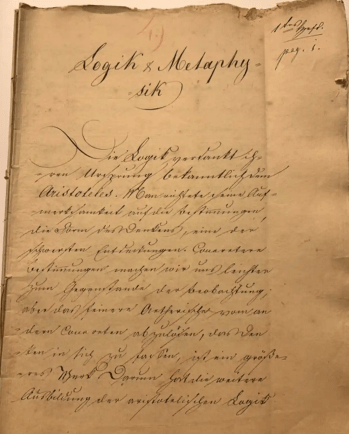 1tes Heft.
pag. 1.
Logik & Metaphy-
sik
Die Logik verdankt ih-
ren Ursprung bekanntlich dem
Aristoteles. Man richtete seine Auf-
merksamkeit auf die Bestimmungen,
die Form des Denkens, eine der
schwersten Entdeckungen. Concretere
Bestimmungen machen wir uns leichter
zum Gegenstande der Beobachtung;
aber das fernere Aetherische vom an-
dern Concreten abzulösen, das Den-
ken in sich zu fassen, ist ein größe-
res Werk Darum hat die weitere
Ausbildung der aristotelischen Logik